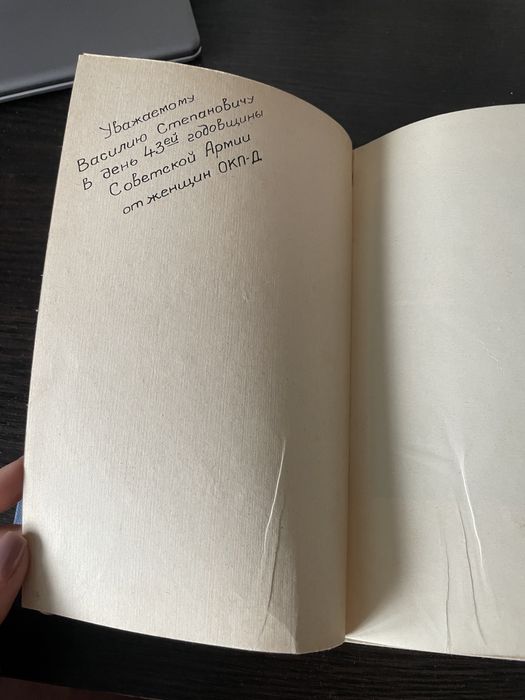 Уважаемому
Василию Степановичу
в день 43ей годовщины
Советской Армии
от женщин ОКП-Д